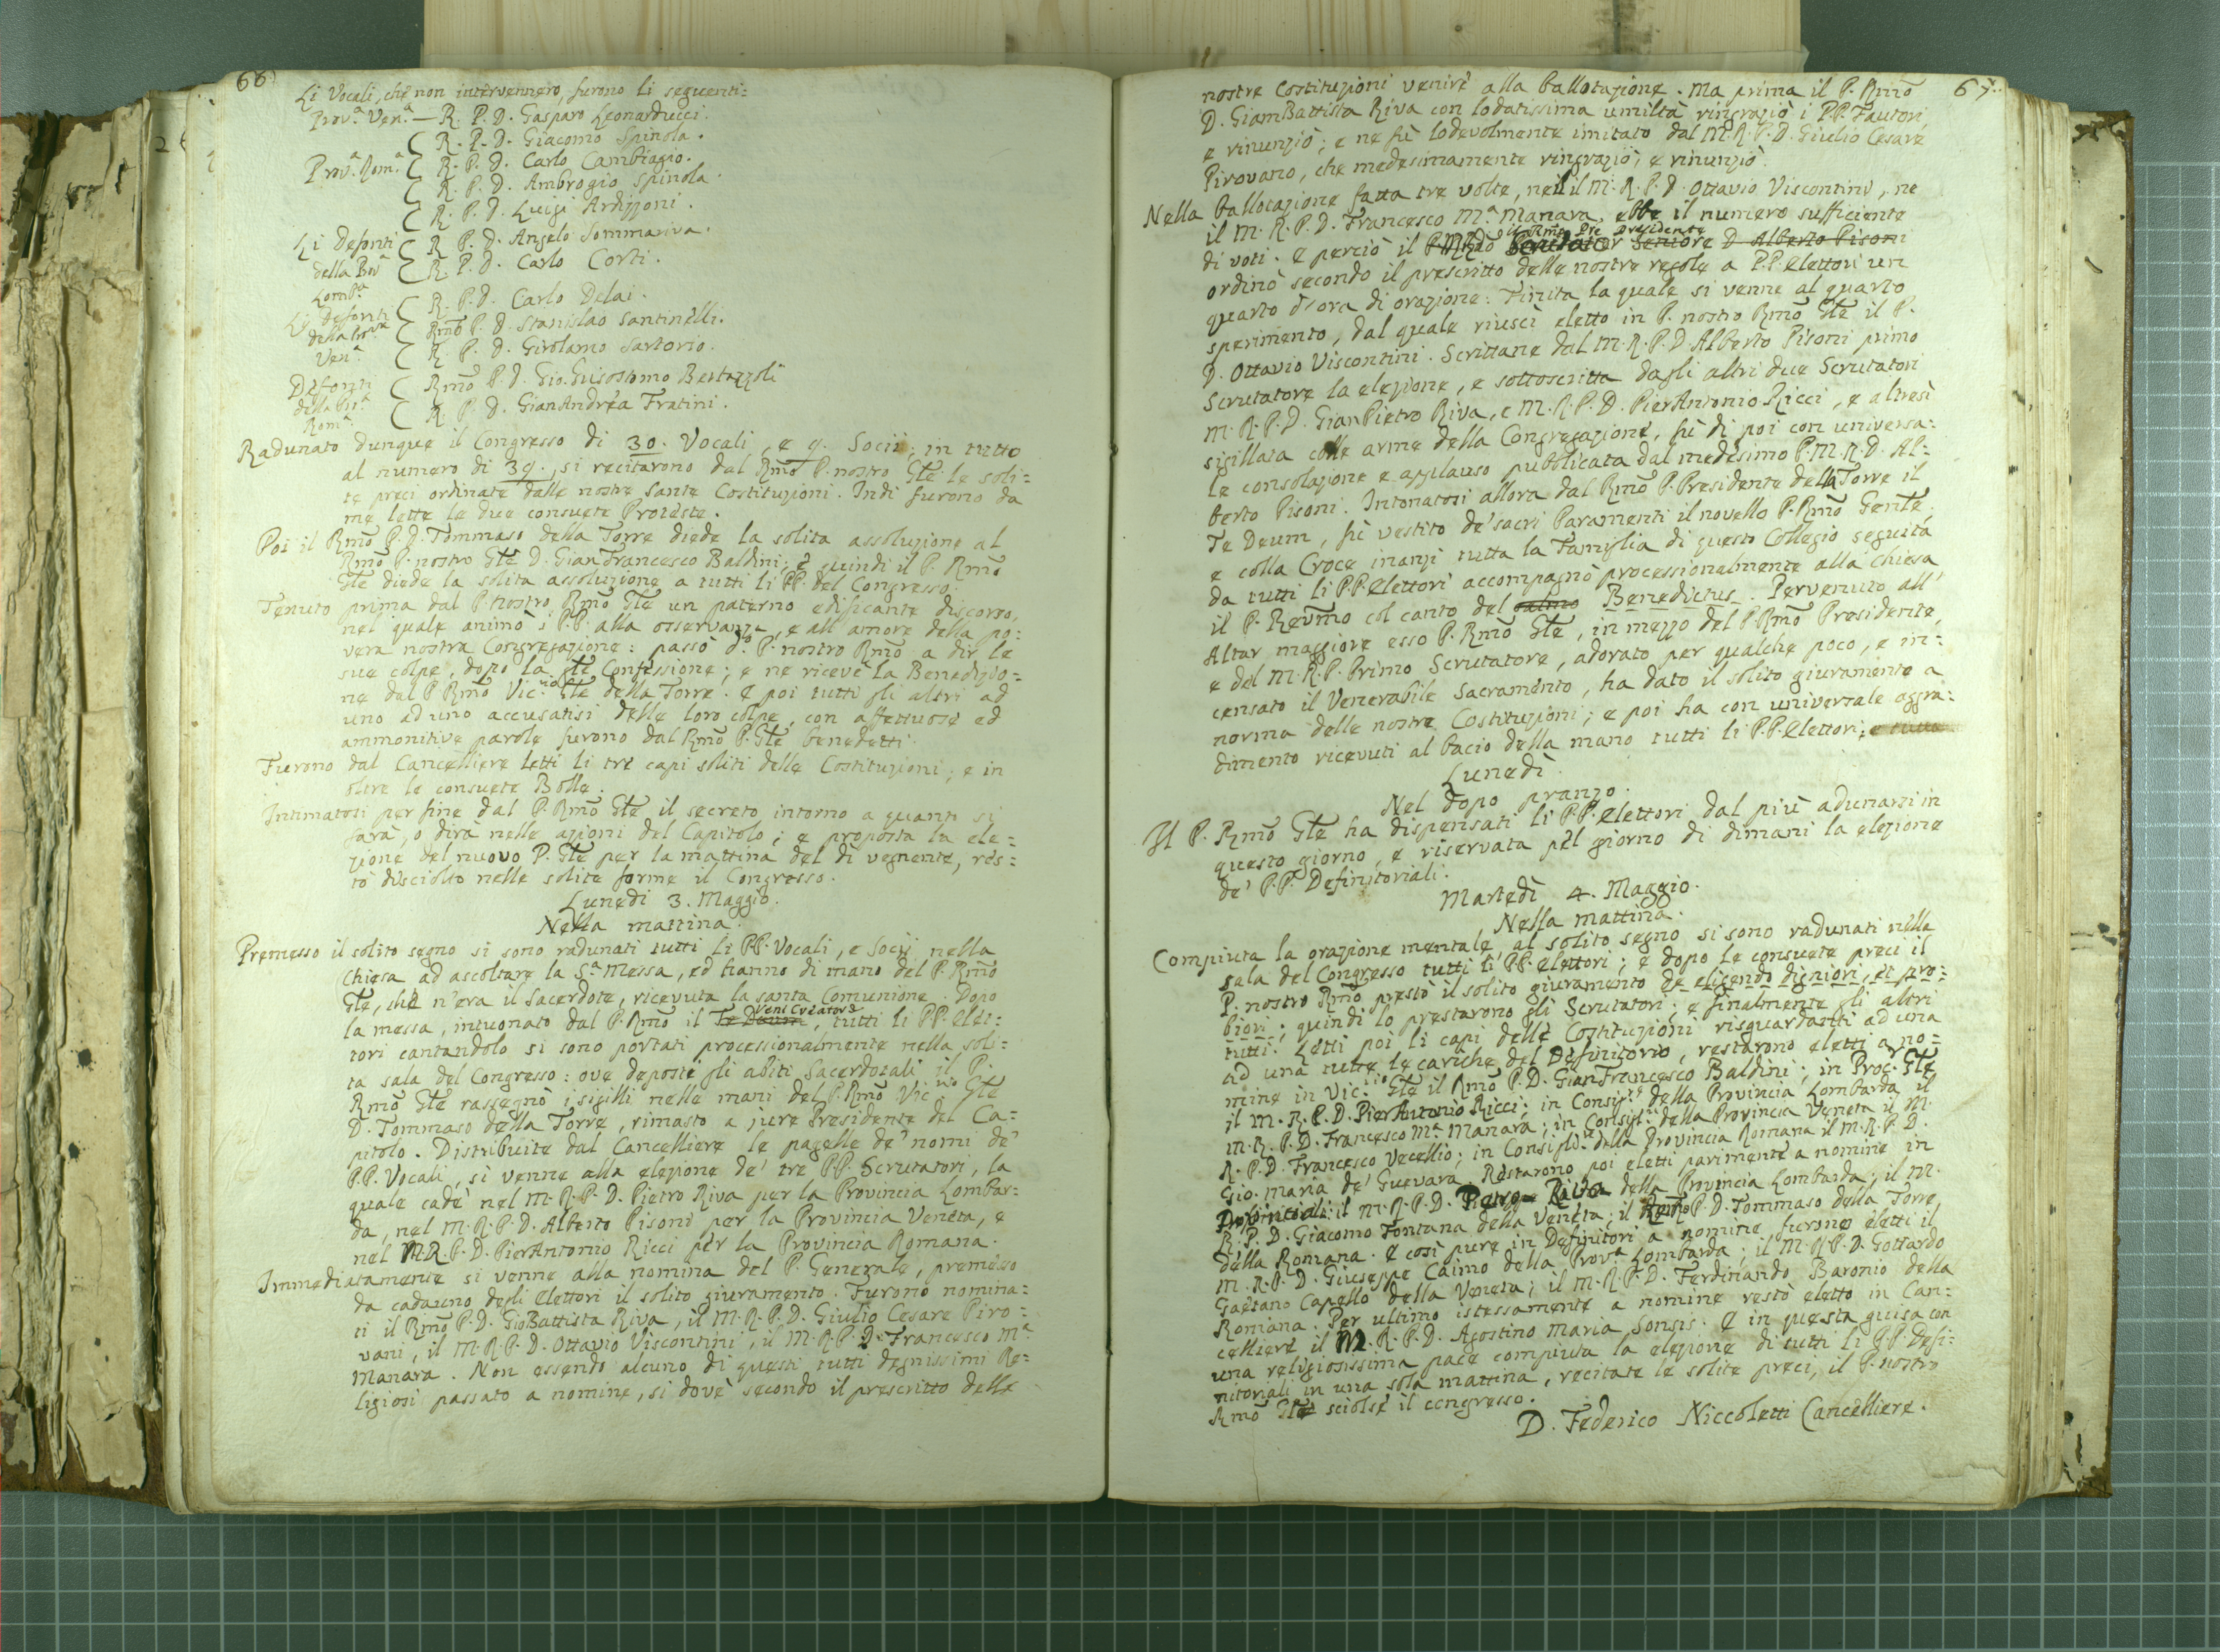 66
Li Vocali, che non intervennero, furono li seguenti:
Prov.ª Ven.ª — R. P. D. Gasparo Leonarducci.
R. P. D. Giacomo Spinola.
Prov.ª Rom.ª R. P. D. Carlo Cambiagio.
R. P. D. Ambrogio Spinola.
R. P. D. Luigi Ardizzoni.
Li Defonti R. P. D. Angelo Sommariva.
della Prov.ª R. P. D. Carlo Corti.
Lomb.ª
Li Defonti R. P. D. Carlo Delai.
della Prov.ª Rm̃o P. D. Stanislao Santinelli.
Ven.ª R. P. D. Girolamo Sartorio.
Defonti Rm̃o P. D. Gio. Grisostomo Bertazzoli
della Pr.ª R. P. D. GianAndrea Fratini.
Rom.ª
Radunato dunque il Congresso di 30. Vocali, e 9. Socii; in tutto
al numero di 39., si recitarono dal Rm̃o P. nostro Gl̃e le soli=
te preci ordinate dalle nostre Sante Costituzioni. Indi furono da
me lette le due consuete Proteste.
Poi il Rm̃o P. D. Tommaso della Torre diede la solita assoluzione al
Rm̃o P. nostro Gl̃e D. GianFrancesco Baldini; e quindi il P. Rm̃o
Gl̃e diede la solita assoluzione a tutti li PP. del Congresso.
Tenuto prima dal P. nostro Rm̃o Gl̃e un paterno edificante discorso,
nel quale animò i P.P. alla osservanza, e all'amore della po:
vera nostra Congregazione: passò d.º P. nostro Rm̃o a dir le
sue colpe, dopo la gl̃e Confessione; e ne ricevè la Benedizio=
ne dal P. Rm̃o Vic.rio Gl̃e della Torre. E poi tutti gli altri ad
uno ad uno accusatisi delle loro colpe, con affettuose ed
ammonitive parole furono dal Rm̃o P. Gl̃e benedetti.
Furono dal Cancelliere letti li tre capi soliti delle Costituzioni; e in
oltre le consuete Bolle.
Intimatosi per fine dal P. Rm̃o Gl̃e il secreto intorno a quanto si
farà, o dirà nelle azioni del Capitolo; e proposta la ele=
zione del nuovo P. Gl̃e per la mattina del dì vegnente, res=
tò disciolto nelle solite forme il Congresso.
Lunedì 3. Maggio.
Nella mattina.
Premesso il solito segno si sono radunati tutti li PP. Vocali, e Socij nella
Chiesa ad ascoltare la S.ª Messa, ed hanno di mano del P. Rm̃o
Gl̃e, che n'era il Sacerdote, ricevuta la santa Comunione. Dopo
la messa, intuonato dal P. Rm̃o il Te Deum Veni Creator, tutti li PP. Elet=
tori cantandolo si sono portati processionalmente nella soli=
ta sala del Congresso: ove deposti gli abiti Sacerdotali il P.
Rm̃o Gl̃e rassegnò i sigilli nelle mani del P. Rm̃o Vic.rio Gl̃e
D. Tommaso della Torre, rimasto a jure Presidente del Ca=
pitolo. Distribuite dal Cancelliere le pagelle de' nomi de'
P.P. Vocali, si venne alla elezione de' tre PP. Scrutatori, la
quale cadè nel M. R. P. D. Pietro Riva per la Provincia Lombar=
da, nel M. R. P. D. Alberto Pisoni per la Provincia Veneta, e
nel M. R. P. D. PierAntonio Ricci per la Provincia Romana.
Immediatamente si venne alla nomina del P. Generale, premesso
da cadauno degli Elettori il solito giuramento. Furono nomina=
ti il Rm̃o P. D. GioBattista Riva, il M. R. P. D. Giulio Cesare Piro=
vani, il M. R. P. D. Ottavio Viscontini, il M. R. P. D. Francesco M.ª
Manara. Non essendo alcuno di questi tutti degnissimi Re=
ligiosi passato a nomine, si dovè secondo il prescritto delle
67.
nostre Costituzioni venire alla ballotazione. Ma prima il P. Rm̃o
D. GiamBattista Riva con lodatissima umiltà ringraziò i P.P. Fautori,
e rinunziò; e ne fù lodevolmente imitato dal M. R. P. D. Giulio Cesare
Pirovano, che medesimamente ringraziò, e rinunziò.
Nella ballotazione fatta tre volte, nè il M. R. P. D. Ottavio Viscontini, ne
il M. R. P. D. Francesco M.ª Manara, ebbe il numero sufficiente
il Rm̃o Pre Presidente
di voti. E perciò il Seniore D. Alberto Pisoni
ordinò secondo il prescritto delle nostre regole a P.P. Elettori un
quarto d'ora di orazione: Finita la quale si venne al quarto
sperimento, dal quale riuscì eletto in P. nostro Rm̃o Gl̃e il P.
D. Ottavio Viscontini. Scrittane dal M. R. P. D. Alberto Pisoni primo
Scrutatore la elezione, e sottoscritta dagli altri due Scrutatori
M. R. P. D. GianPietro Riva, e M. R. P. D. PierAntonio Ricci, e altresì
sigillata colle arme della Congregazione, fù di poi con universa:
le consolazione e applauso pubblicata dal medesimo P. M. R. D. Al=
berto Pisoni. Intonatosi allora dal Rm̃o P. Presidente della Torre il
Te Deum, fù vestito de' sacri Paramenti il novello P. Rm̃o Genl̃e,
e colla Croce inanzi tutta la Famiglia di questo Collegio seguita
da tutti li P.P. Elettori accompagnò processionalmente alla Chiesa
il P. Revm̃o col canto del salmo Benedictus. Pervenuto all'
Altar maggiore esso P. Rm̃o Gl̃e, in mezzo del P. Rm̃o Presidente,
e del M. R. P. Primo Scrutatore, adorato per qualche poco, e in=
censato il Venerabile Sacramento, ha dato il solito giuramento a
norma delle nostre Costituzioni; e poi ha con universale aggra:
dimento ricevuti al bacio della mano tutti li P.P. Elettori; e tutta
Lunedì.
Nel dopo pranzo.
Il P. Rm̃o Gl̃e ha dispensati li P.P. Elettori dal più adunarsi in
questo giorno, e riservata pel giorno di dimani la elezione
de' P.P. Definitoriali.
Martedì 4. Maggio.
Nella mattina.
Compiuta la orazione mentale, al solito segno si sono radunati nella
sala del Congresso tutti li PP. Elettori; e dopo le consuete preci il
P. nostro Rm̃o prestò il solito giuramento de eligendo digniori, et pro=
biori; quindi lo prestarono gli Scrutatori; e finalmente gli altri
tutti. Letti poi li capi delle Costituzioni risguardanti ad una
ad una tutte le cariche del Definitorio, restarono eletti a no=
mine in Vic.rio Gl̃e il Rm̃o P. D. GianFrancesco Baldini; in Proc.r Gl̃e
il M. R. P. D. PierAntonio Ricci; in Consig.re della Provincia Lombarda il
M. R. P. D. Francesco M.ª Manara; in Consigl.re della Provincia Veneta il M.
R. P. D. Francesco Vecellio; in Consigl.re della Provincia Romana il M. R. P. D.
Gio. Maria de' Guevara. Restarono poi eletti parimente a nomine in
Provinciali: il M. R. P. D. Pietro Riva della Provincia Lombarda; il M.
R. P. D. Giacomo Fontana della Veneta; il Rm̃o P. D. Tommaso della Torre,
della Romana. E così pure in Definitori a nomine furono eletti il
M. R. P. D. Giuseppe Caimo della Prov.ª Lombarda; il M. R. P. D. Gottardo
Gaetano Capello della Veneta; il M. R. P. D. Ferdinando Baronio della
Romana. Per ultimo istessamente a nomine restò eletto in Can=
celliere il M. R. P. D. Agostino Maria Sonsis. E in questa guisa con
una religiosissima pace compiuta la elezione di tutti li P.P. Defi=
nitoriali in una sola mattina, recitate le solite preci, il P. nostro
Rm̃o Gl̃e sciolse il congresso.
D. Federico Niccoletti Cancelliere.